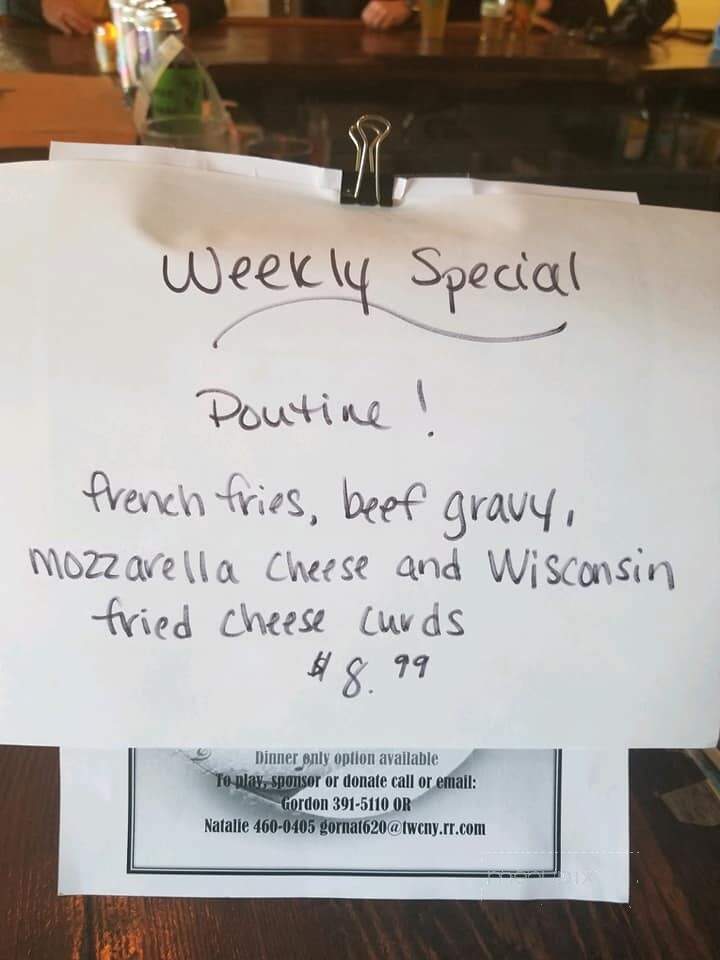 Weekly Special
Poutine!
french fries, beef gravy,
mozzarella cheese and Wisconsin
fried cheese curds
$8.99
Dinner only option available
To play, sponsor or donate call or email:
Gordon 391-5110 OR
Natalie 460-0405 gornat620@twcny.rr.com